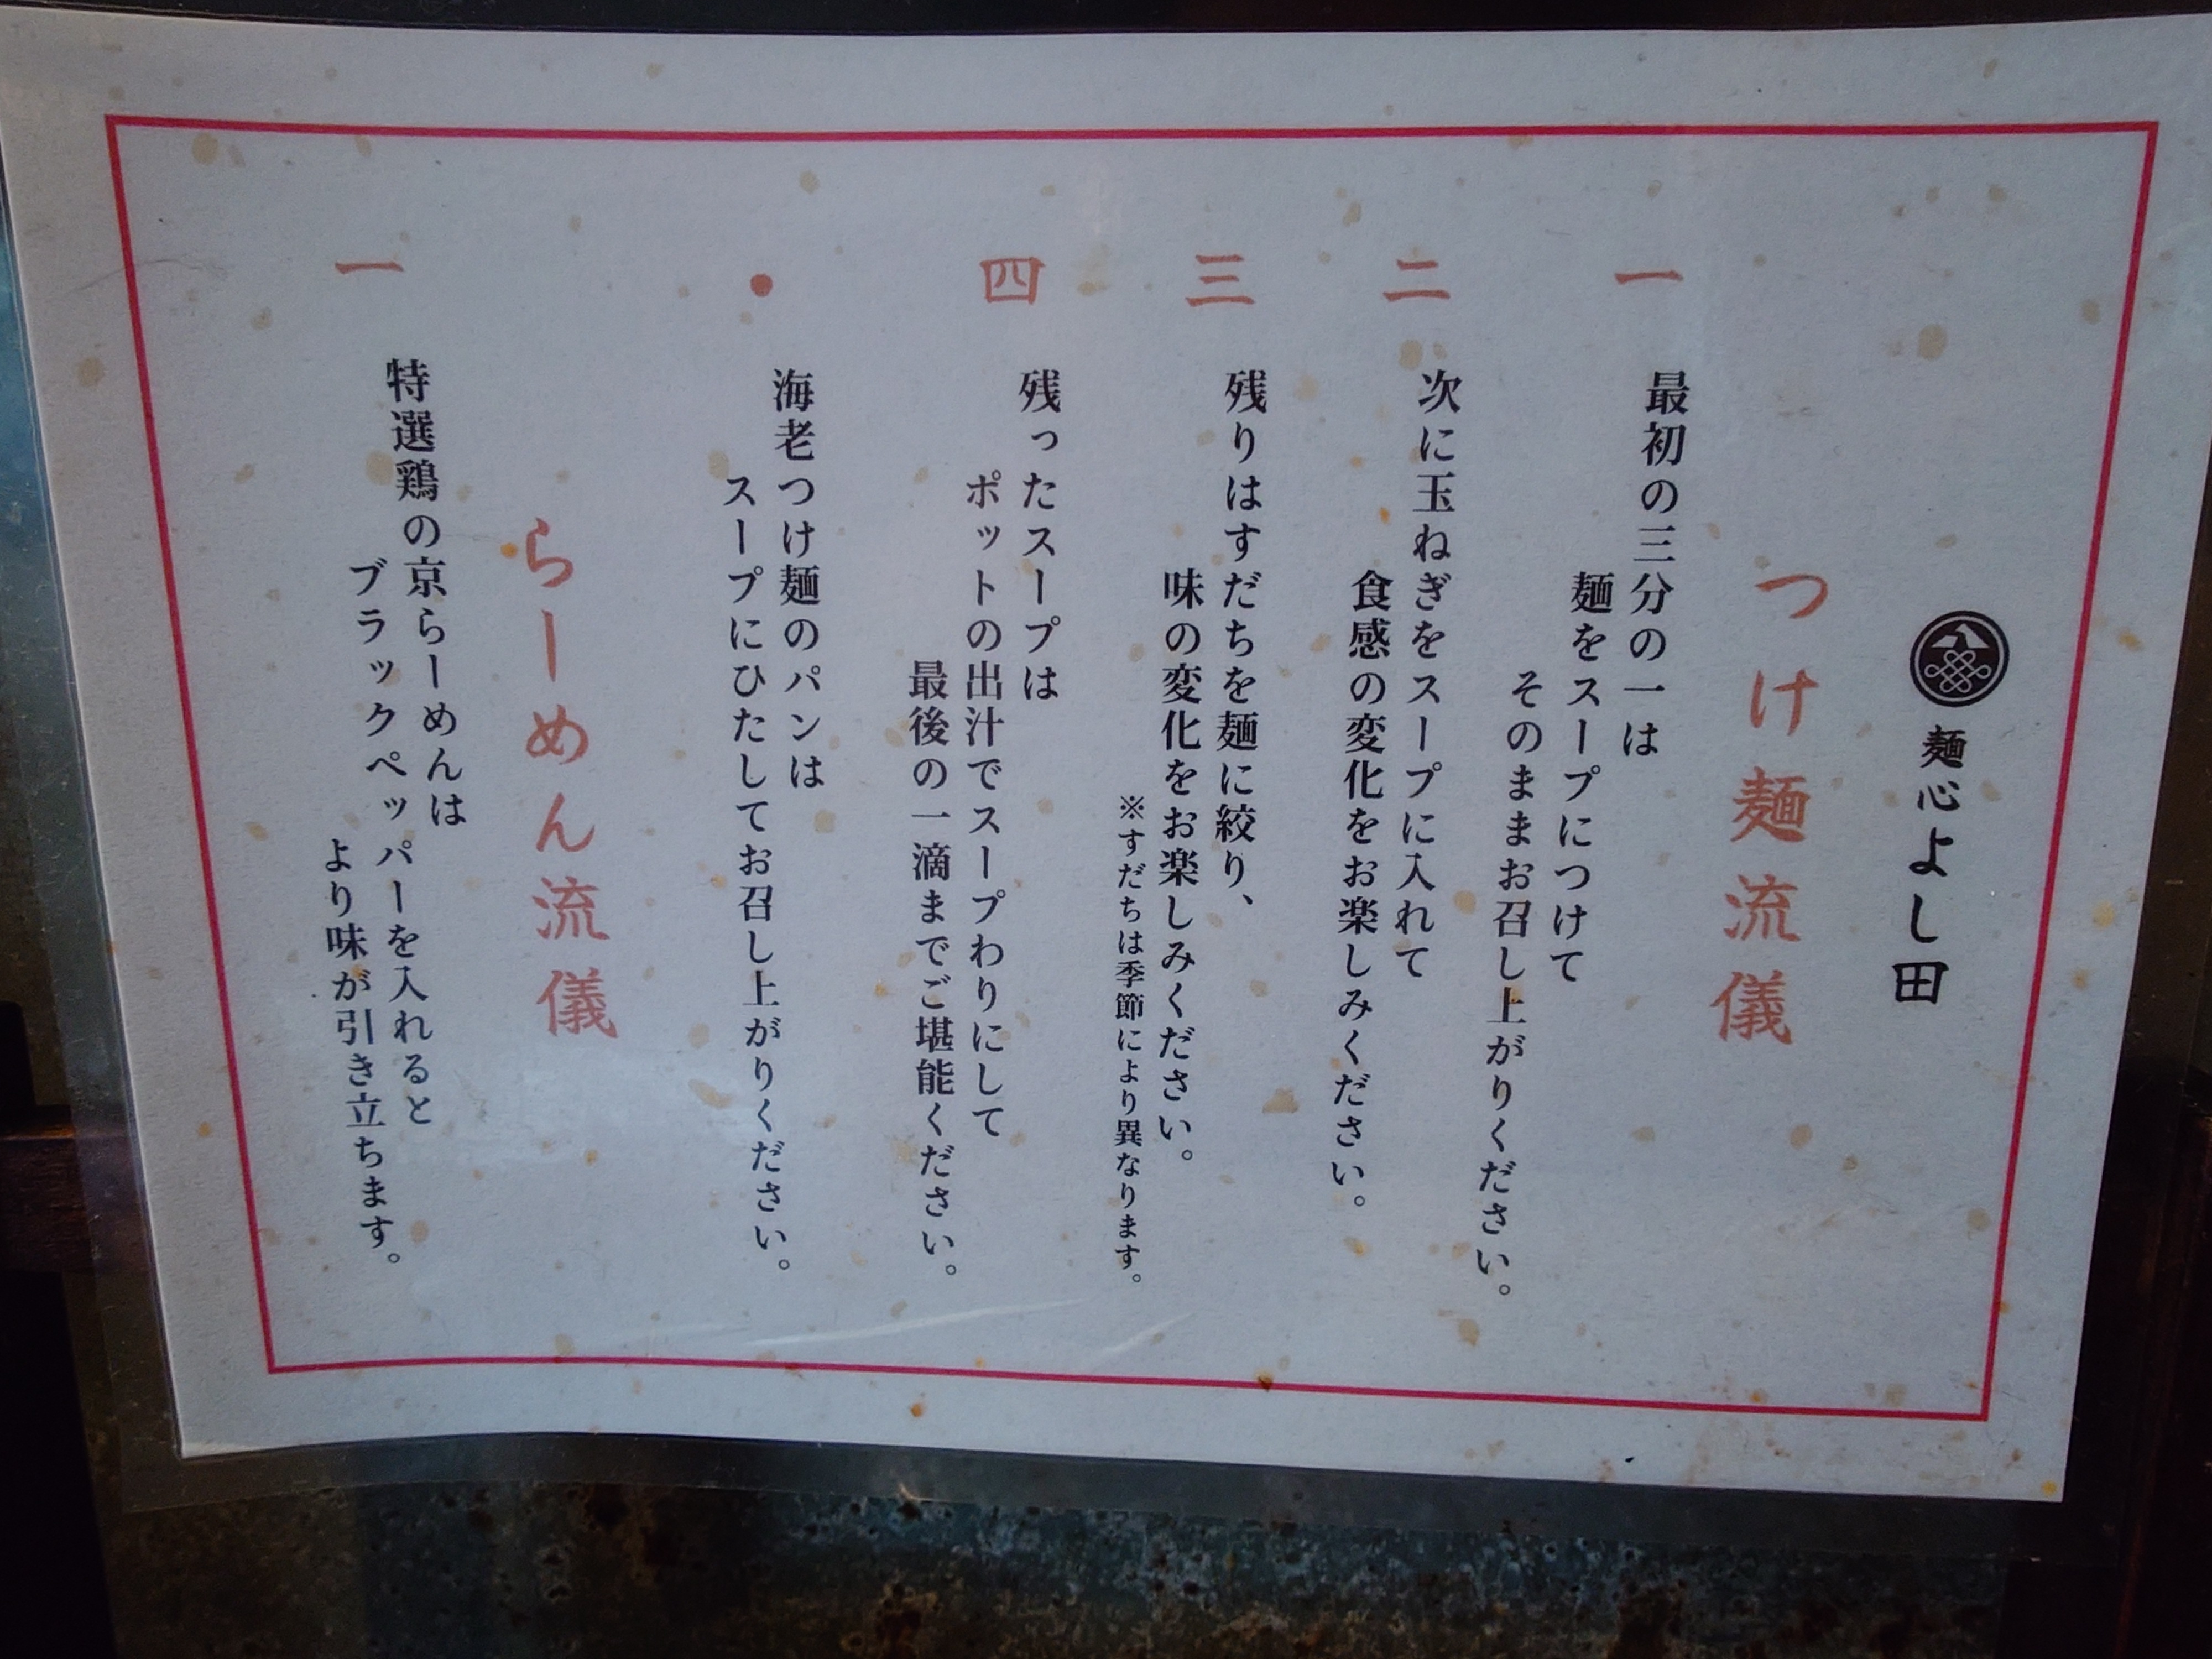 麺心よし田
つけ麺流儀
一
最初の三分の一は
麺をスープにつけて
そのままお召し上がりください。
二
次に玉ねぎをスープに入れて
食感の変化をお楽しみください。
三
残りはすだちを麺に絞り、
味の変化をお楽しみください。
※すだちは季節により異なります。
四
残ったスープは
ポットの出汁でスープわりにして
最後の一滴までご堪能ください。
●
海老つけ麺のパンは
スープにひたしてお召し上がりください。
らーめん流儀
一
特選鶏の京らーめんは
ブラックペッパーを入れると
より味が引き立ちます。